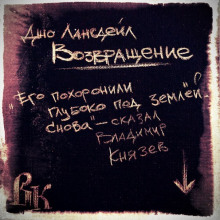 Джо Лансдейл
Возвращение
"Его похоронили
глубоко под землёй.
Снова" — сказал
Владимир
Князев
ВК